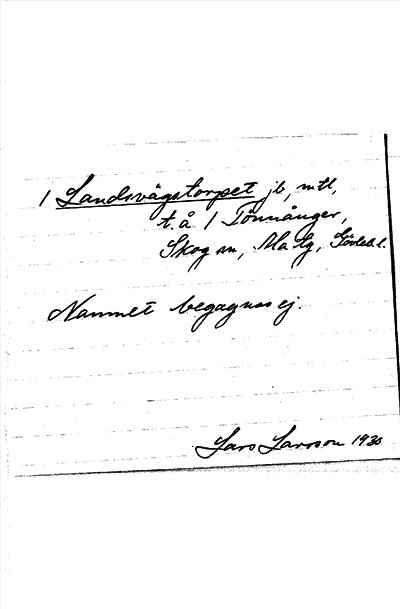 1 Landsvägstorpet jb, mtl,
t. å 1 Tönnånger,
Skog sn, Ma tg, Gävleb. l.
Namnet begagnas ej.
Lars Larsson 1930